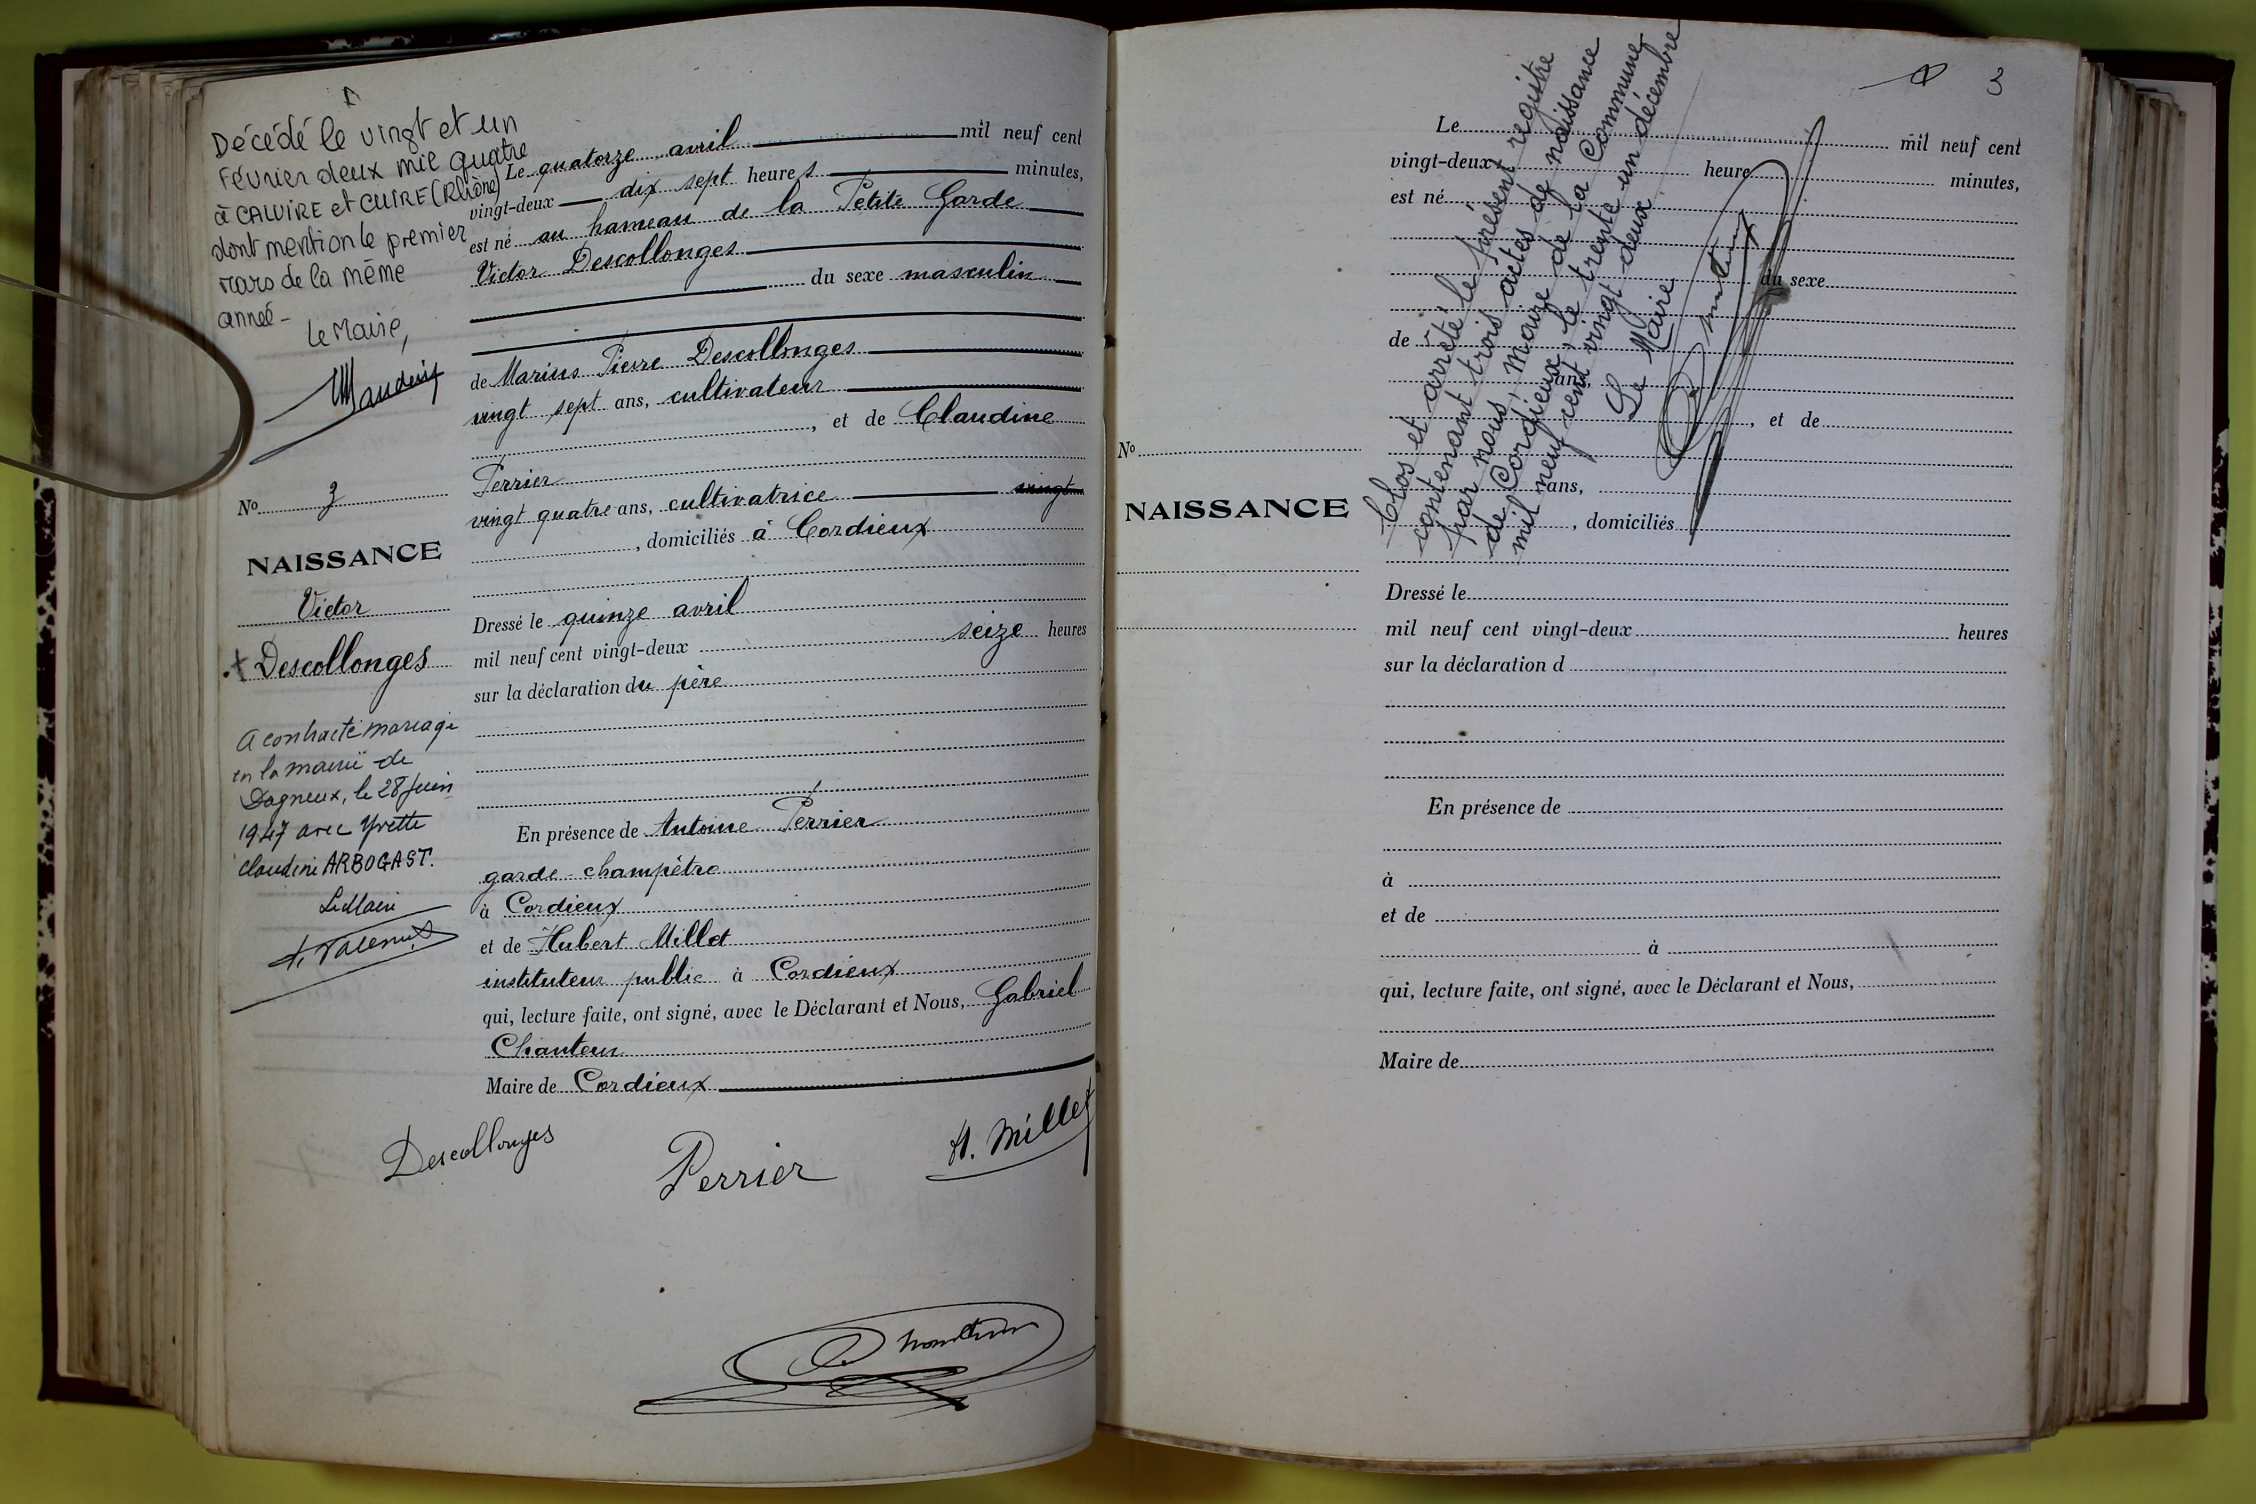 Décédé le vingt et un
février deux mil quatre
à CALUIRE et CUIRE (Rhône)
dont mention le premier
mars de la même
année -
Le Maire,
No 3
NAISSANCE
Victor
Descollonges
A contracté mariage
en la mairie de
Dagneux, le 28 Juin
1947 avec Yvette
Claudine ARBOGAST.
Le Maire
Le quatorze avril mil neuf cent
vingt-deux dix sept heures minutes,
est né au hameau de la Petite Garde
Victor Descollonges
du sexe masculin
de Marius Pierre Descollonges
vingt sept ans, cultivateur
, et de Claudine
Perrier
vingt quatre ans, cultivatrice vingt
, domiciliés à Cordieux
Dressé le quinze avril
mil neuf cent vingt-deux seize heures
sur la déclaration du père
En présence de Antoine Perrier
garde-champêtre
à Cordieux
et de Hubert Millet
instituteur public à Cordieux
qui, lecture faite, ont signé, avec le Déclarant et Nous, Gabriel
Chanteur
Maire de Cordieux
Descollonges
Perrier
H. Millet
3
Le mil neuf cent
vingt-deux heure minutes,
est né
du sexe
de
ans,
, et de
No
ans,
NAISSANCE
, domiciliés
Clos et arrêté le présent registre
contenant trois actes de naissance
par nous, maire de la Commune
de Cordieux, le trente un décembre
mil neuf cent vingt deux
Le Maire
Dressé le
mil neuf cent vingt-deux heures
sur la déclaration d
En présence de
à
et de
à
qui, lecture faite, ont signé, avec le Déclarant et Nous,
Maire de